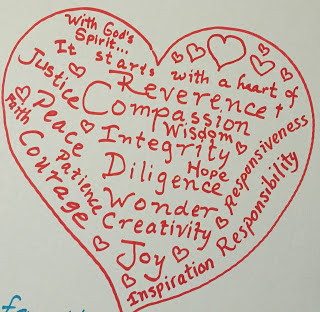 With God's
Spirit...
It starts with a heart of
Reverence
Compassion
Wisdom
Integrity
Hope
Diligence
Wonder
Creativity
Joy
Justice
Peace
Faith
Patience
Courage
Responsiveness
Responsibility
Inspiration